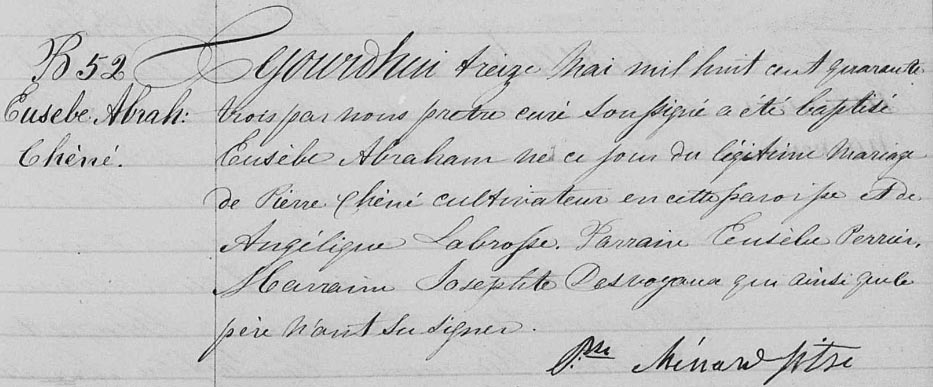 B 52
Eusebe Abrah:
Chéné.
Ajourdhui treize Mai mil huit cent quarante
trois par nous pretre curé soussigné a été baptisé
Eusèbe Abraham né ce jour du légitime Mariage
de Pierre Chéné cultivateur en cette paroisse et de
Angélique Labrosse. Parrain Eusèbe Perrier,
Marraine Josephte Desvoyaux qui ainsi que le
père n'ont su signer.
P.re Ménard ptre